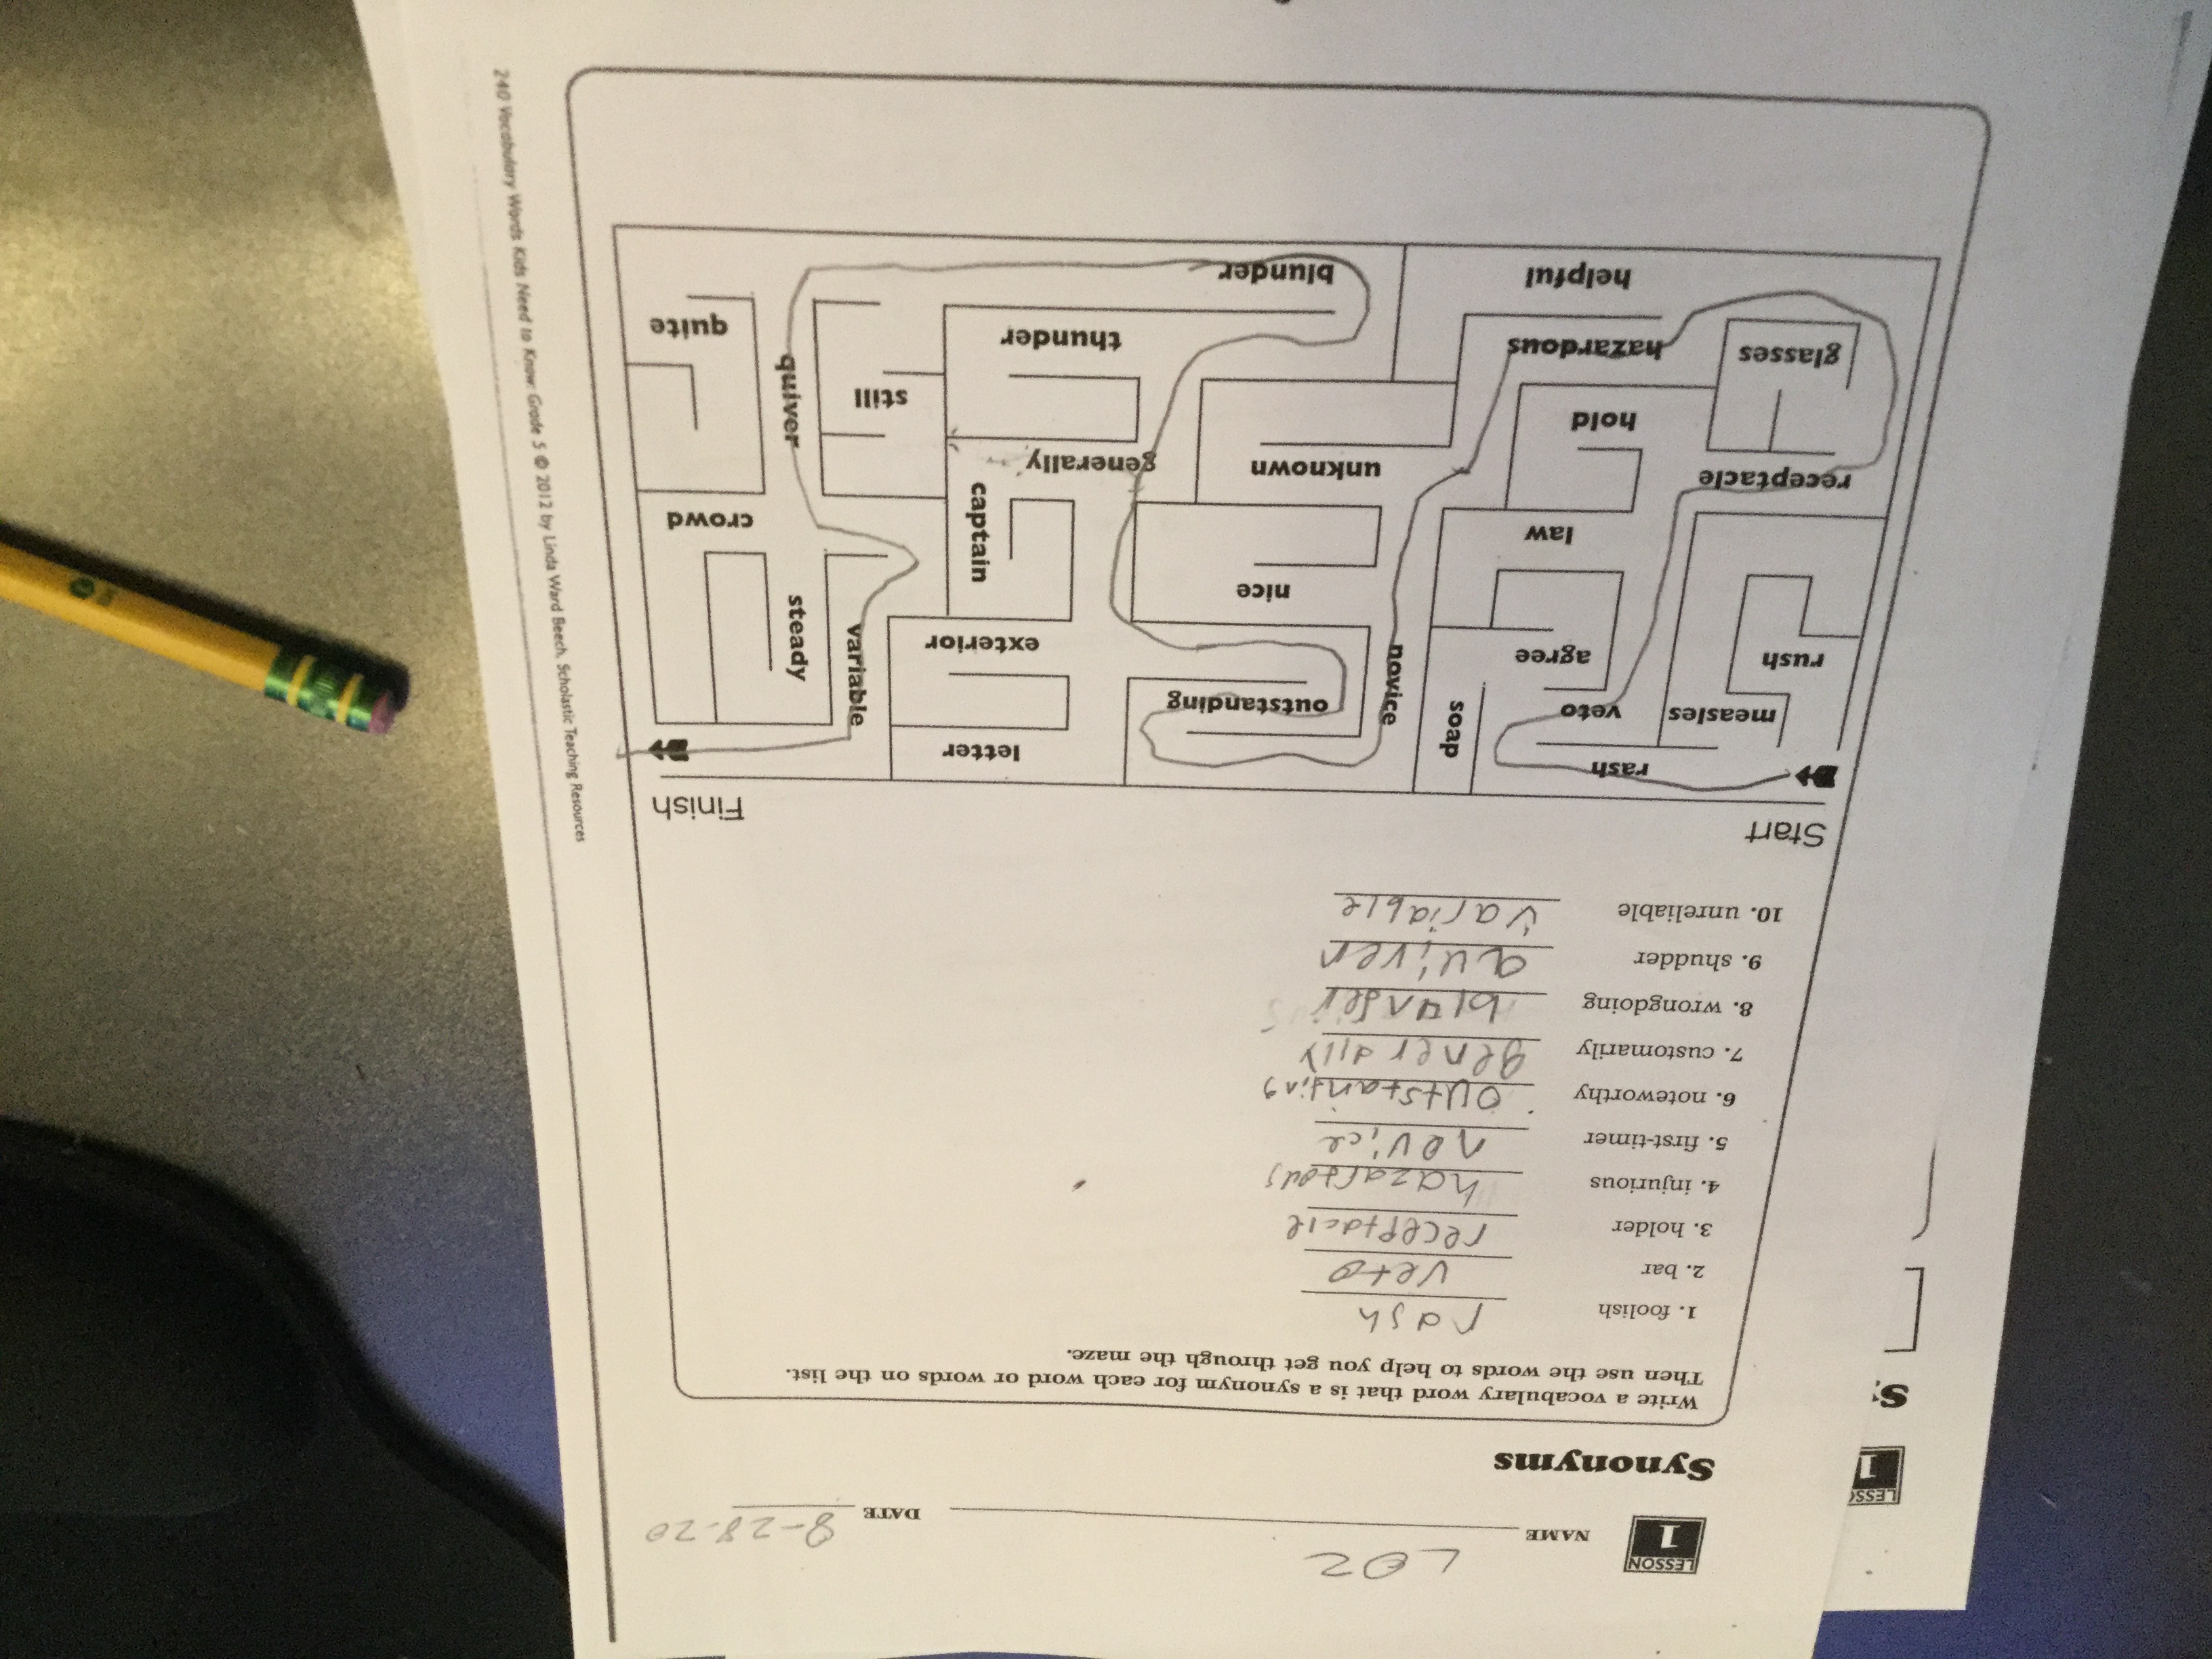 LESSON
1
NAME LOZ
DATE 8-28-20
Synonyms
Write a vocabulary word that is a synonym for each word or words on the list.
Then use the words to help you get through the maze.
1. foolish rash
2. bar veto
3. holder receptacle
4. injurious hazardous
5. first-timer novice
6. noteworthy outstanding
7. customarily generally
8. wrongdoing blunder
9. shudder quiver
10. unreliable variable
Start
Finish
rash
soap
letter
measles
veto
novice
outstanding
variable
rush
agree
exterior
steady
nice
law
captain
crowd
receptacle
unknown
generally
hold
still
quiver
glasses
hazardous
thunder
quite
helpful
blunder
240 Vocabulary Words Kids Need to Know: Grade 5 © 2012 by Linda Ward Beech, Scholastic Teaching Resources
LESSO
1